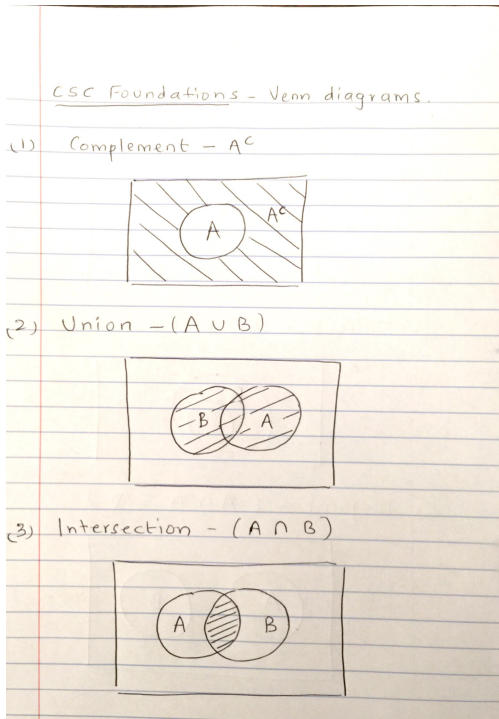 CSC Foundations - Venn diagrams.
(1) Complement - Aᶜ
A Aᶜ
(2) Union - (A ∪ B)
B A
(3) Intersection - (A ∩ B)
A B